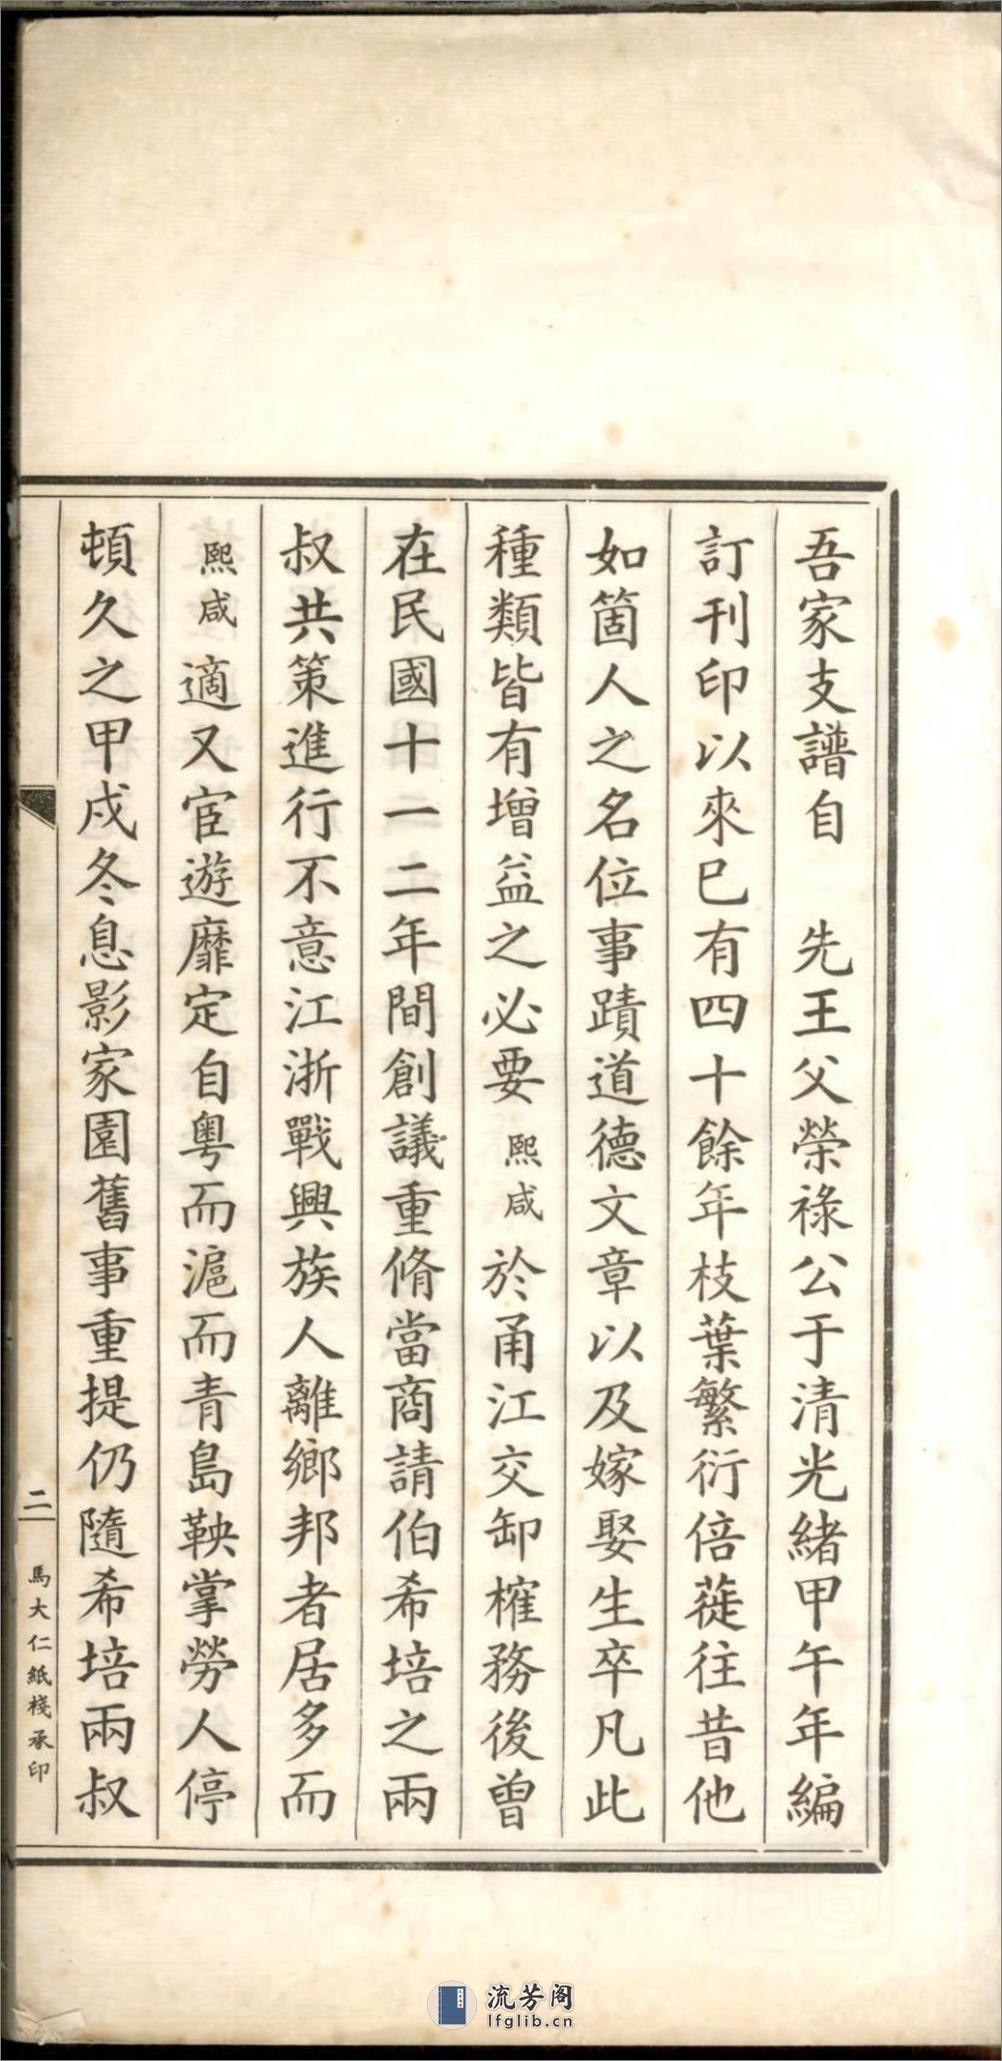 吾家支譜自　先王父榮祿公于清光緒甲午年編
訂刊印以來已有四十餘年枝葉繁衍倍蓰往昔他
如箇人之名位事蹟道德文章以及嫁娶生卒凡此
種類皆有增益之必要熙咸於甬江交卸榷務後曾
在民國十一二年間創議重脩當商請伯希培之兩
叔共策進行不意江浙戰興族人離鄉邦者居多而
熙咸適又宦遊靡定自粵而滬而青島鞅掌勞人停
頓久之甲戌冬息影家園舊事重提仍隨希培兩叔
二
馬大仁紙棧承印
流芳阁
lfglib.cn